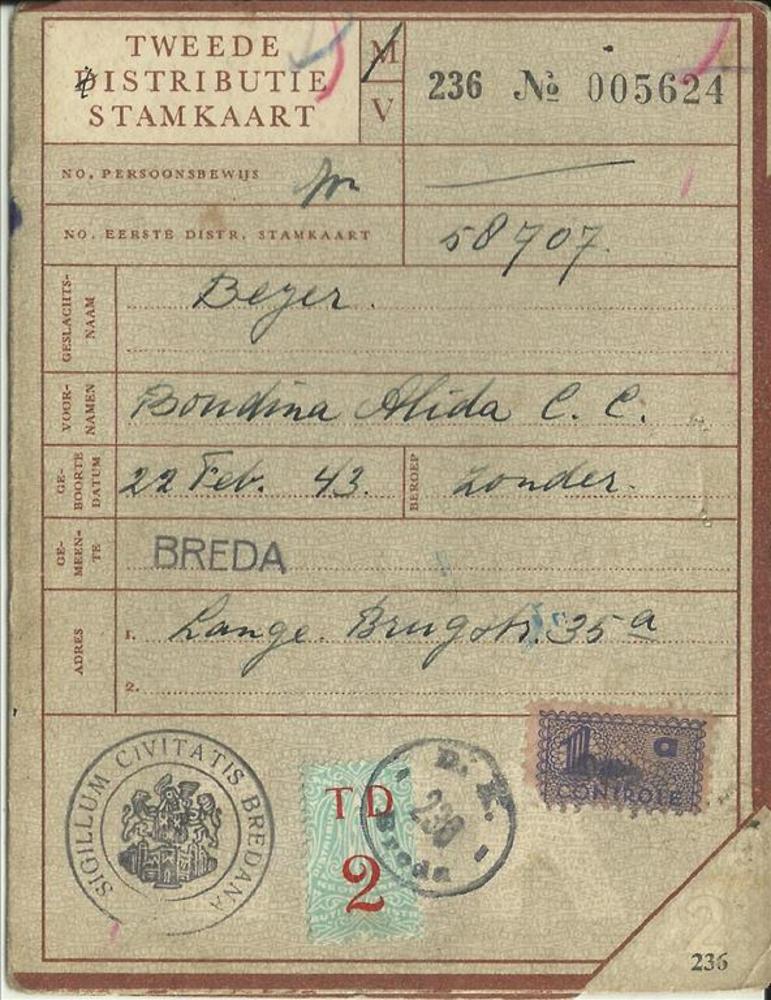 TWEEDE
DISTRIBUTIE
STAMKAART
M
V
236 № 005624
NO. PERSOONSBEWIJS
NO. EERSTE DISTR. STAMKAART
58707.
GESLACHTS-
NAAM
Beyer.
VOOR-
NAMEN
Bondina Alida C. C.
GE-
BOORTE
DATUM
22 Feb. 43.
BEROEP
Zonder.
GE-
MEEN-
TE
BREDA
ADRES
1.
Lange. Brugstr. 35 a
2.
SIGILLUM CIVITATIS BREDANA
TD
2
D. K.
236
Breda
1 a
CONTROLE
236